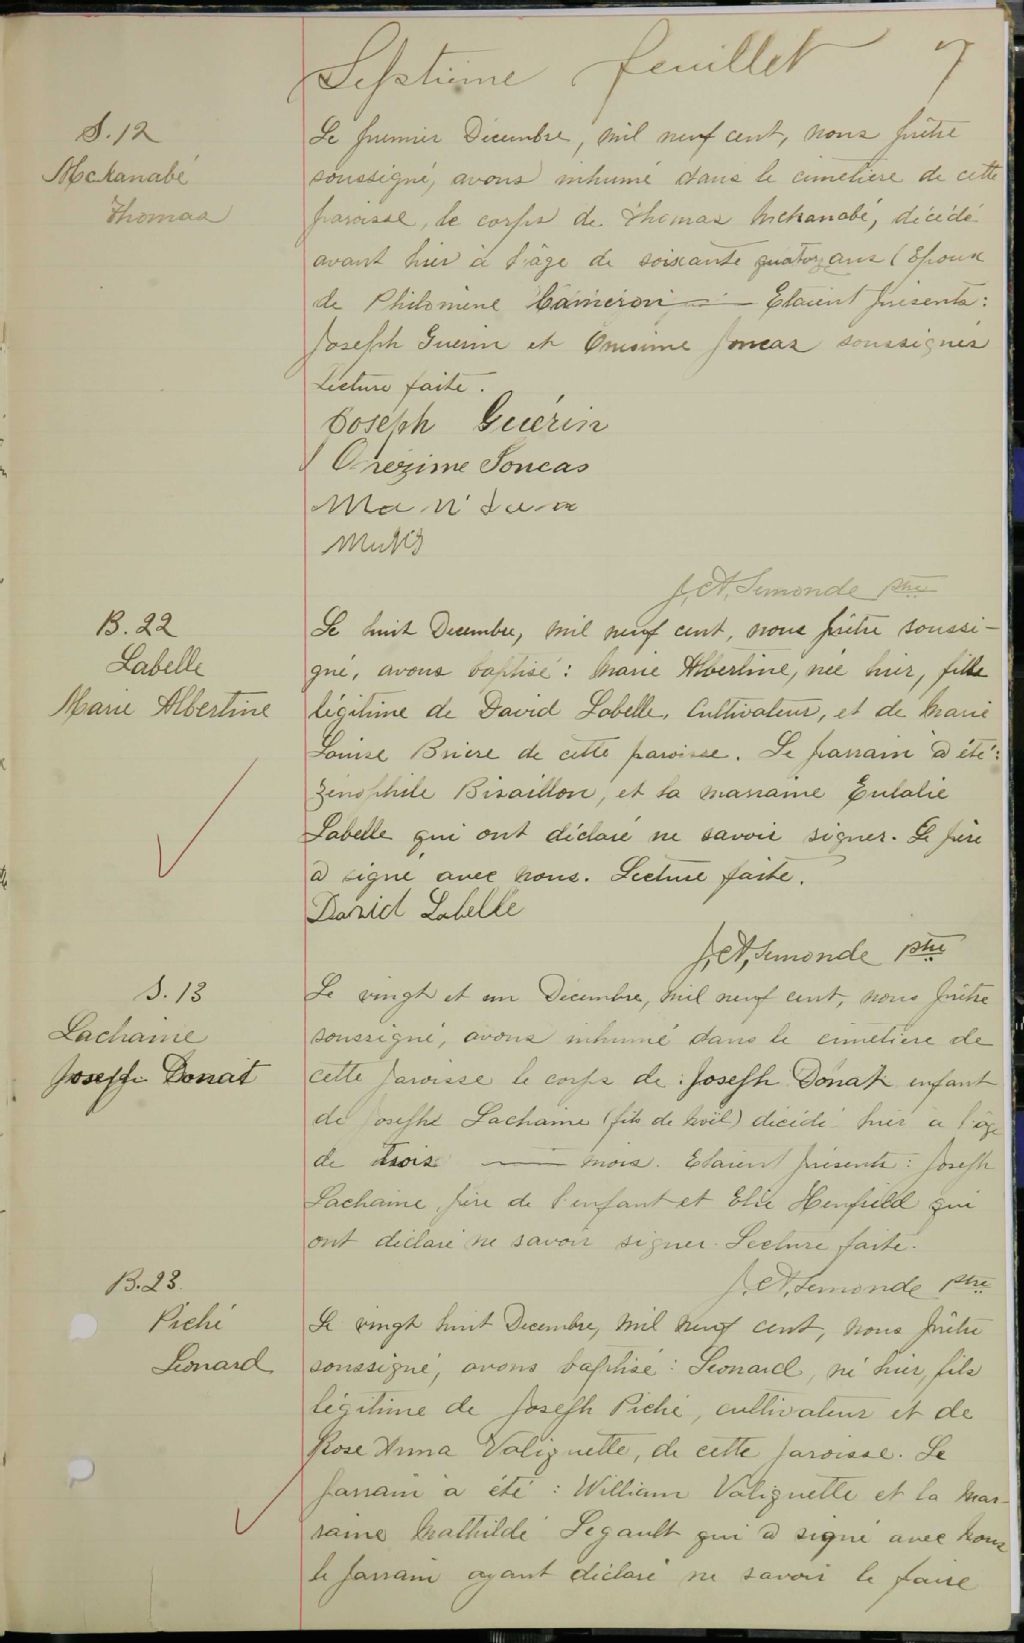 Septième feuillet 7
S. 12
Mckanabé
Thomas
Le premier Décembre, mil neuf cent, nous prêtre
soussigné, avons inhumé dans le cimetière de cette
paroisse, le corps de Thomas Mckanabé, décédé
avant hier à l'âge de soixante quatorz ans (Epoux
de Philomène Cameron — Etaient présents:
Joseph Guerin et Onesime Joncas soussignés
Lecture faite.
Joseph Guérin
Onezime Joncas
J. A, Lemonde ptre
B. 22
Labelle
Marie Albertine
Le huit Decembre, mil neuf cent, nous prêtre soussi-
gné, avons baptisé: Marie Albertine, née hier, fille
légitime de David Labelle, Cultivateur, et de Marie
Louise Briere de cette paroisse. Le parrain a été:
Zénophile Bisaillon, et la marraine Eulalie
Labelle qui ont déclaré ne savoir signer. Le père
a signé avec nous. Lecture faite.
David Labelle
J, A, Lemonde ptre
S. 13
Lachaine
Joseph Donat
Le vingt et un Décembre, mil neuf cent, nous prêtre
soussigné, avons inhumé dans le cimetière de
cette paroisse le corps de: Joseph Donat enfant
de Joseph Lachaine (fils de Noël) décédé hier à l'âge
de trois — mois. Etaient présents: Joseph
Lachaine père de l'enfant et Elie Henfield qui
ont déclaré ne savoir signer. Lecture faite.
J. A, Lemonde ptre
B. 23.
Piché
Léonard
Le vingt huit Decembre, mil neuf cent, nous prêtre
soussigné, avons baptisé: Léonard, né hier, fils
légitime de Joseph Piché, cultivateur et de
Rose Anna Valiquette, de cette paroisse. Le
parrain a été: William Valiquette et la mar-
raine Mathilde Legault qui a signé avec nous
le parrain ayant déclaré ne savoir le faire